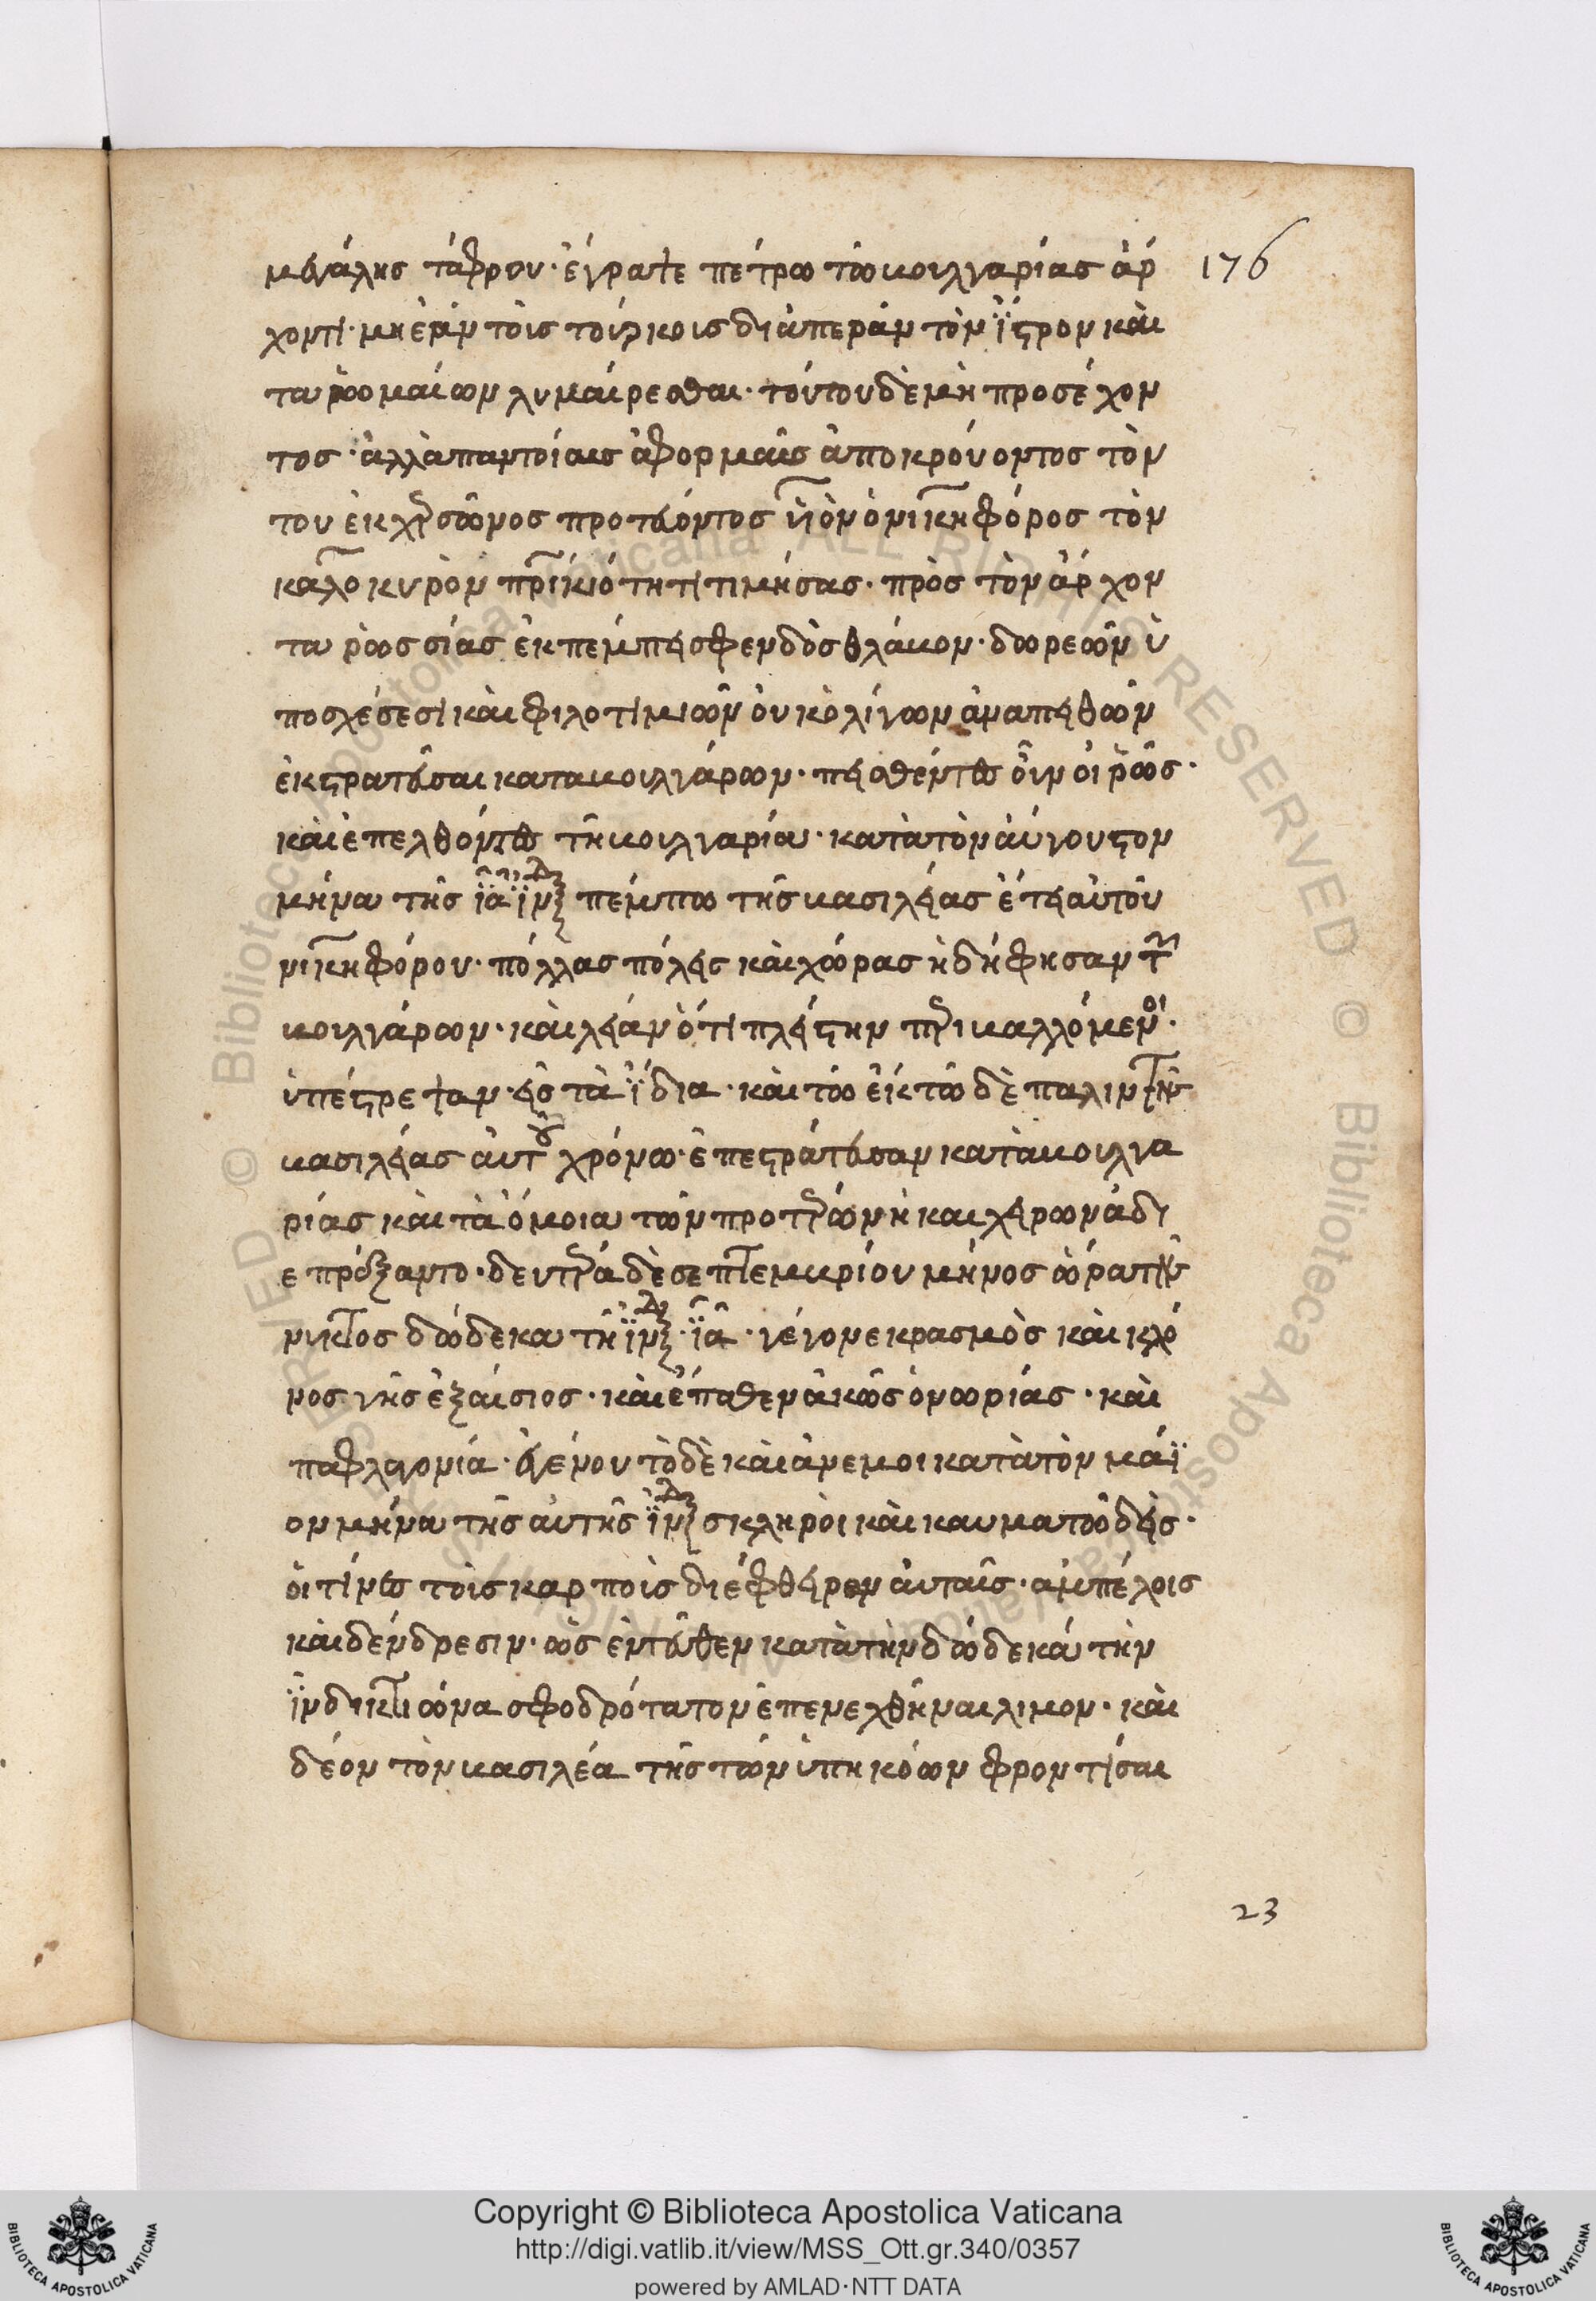 μεγάλης τάφρου· ἔγραψε πέτρω τῶ βουλγαρίας ἄρ 176
χοντι· μὴ ἐᾶν τοῖς τούρκοις διαπερᾶν τὸν ἴστρον καὶ
τα ῥωμαίων λυμαίνεσθαι· τούτου δὲ μὴ προσέχον
τος· ἀλλὰ παντοίαις ἀφορμαῖς ἀποκρούοντος τὸν
του ἐκ χερσῶνος προτεύοντος υἱὸν ὁ νικηφόρος τὸν
καλοκυρὸν πρικιότητι τιμήσας· πρὸς τὸν ἄρχον
τα ῥωσσίας ἐκπέμπει σφενδὸσθλάβον· δωρεῶν ὑ
ποσχέσεσι καὶ φιλοτιμιῶν οὐκ ὀλίγων ἀναπειθῶν
ἐκστρατεῦσαι κατα βουλγάρων· πεισθέντες οὖν οἱ ῥῶς·
καὶ ἐπελθόντες τῆ βουλγαρία· κατὰ τὸν αὔγουστον
μῆνα τῆς ϊα ϊνδ πέμπτω τῆς βασιλείας ἔτει αὐτοῦ
νικηφόρου· πόλλας πόλεις καὶ χώρας ἠδήφησαν τῶν
βουλγάρων· καὶ λείαν ὅτι πλείστην περιβαλλόμενοι·
ὑπέστρεψαν· εἰς τὰ ἴδια· καὶ τῶ ἕκτω δὲ παλιν τῆς
βασιλείας αὐτοῦ χρόνω· ἐπεστράτευσαν κατὰ βουλγα
ρίας καὶ τὰ ὅμοια τῶν προτέρων ἢ και χείρωνα δι
επράξαντο· δευτέρα δὲ σεπτεμβρίου μηνὸς ὥρα τῆς
νυκτος δώδεκα τῆ ϊνδ· ϊα· γέγονε βρασμὸς καὶ κλό
νος γῆς ἐξαίσιος· καὶ ἔπαθεν ἀκῶς ὁνωριάς· καὶ
παφλαγονία· ἐγένουτο δὲ καὶ ἄνεμοι κατὰ τὸν μάϊ
ον μῆνα τῆς αὐτῆς ϊνδ σκληροὶ καὶ καυματώδεις·
οἵτινες τοῖς καρποῖς διέφθειρεν αὐταῖς· αμπέλοις
καὶ δένδρεσιν· ὡς ἐντεῦθεν κατὰ τὴν δωδεκάτην
ϊνδικτιῶνα σφοδρότατον ἐπενεχθῆναι λιμον· καὶ
δέον τὸν βασιλέα τῆς τῶν ὑπηκόων φροντίσαι
23
Copyright © Biblioteca Apostolica Vaticana
http://digi.vatlib.it/view/MSS_Ott.gr.340/0357
powered by AMLAD·NTT DATA